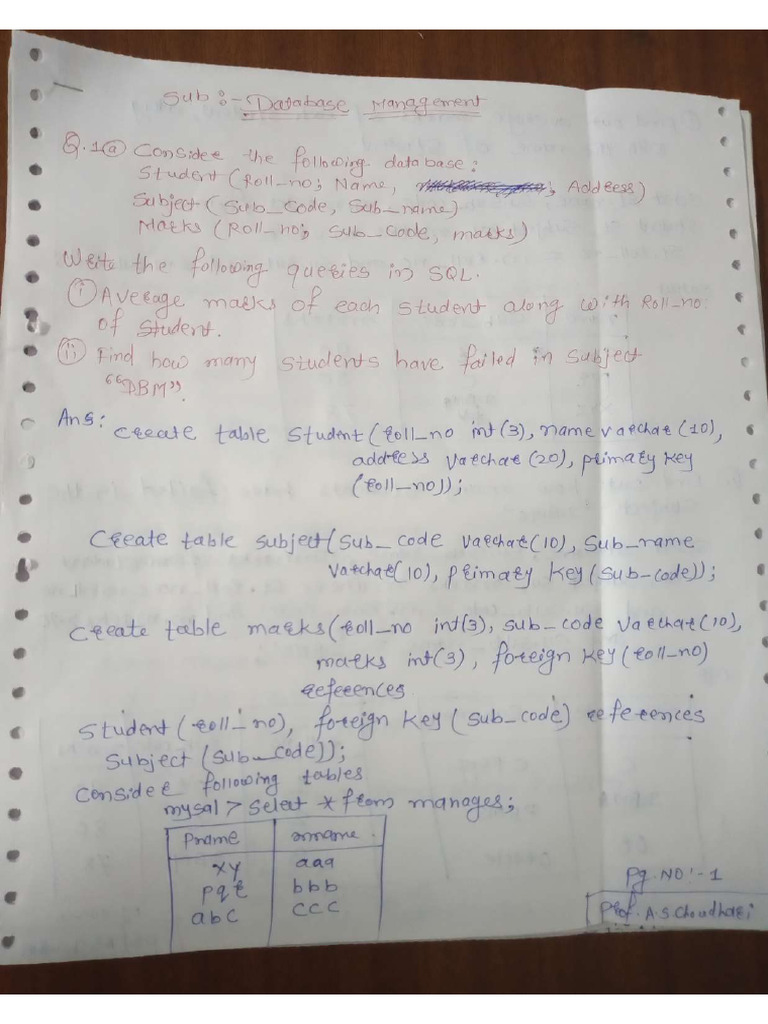 Sub:- Database Management
Q.1(a) Consider the following database:
Student (Roll_no; Name, ; Address)
Subject (Sub_Code, Sub_name)
Marks (Roll_no; Sub_Code, marks)
Write the following queries in SQL.
(i) Average marks of each student along with Roll_no.
of student.
(ii) Find how many students have failed in subject
"DBM".
Ans:
create table Student (roll_no int(3), name varchar (10),
address varchar (20), primary key
(roll_no));
Create table subject (Sub_code varchar(10), Sub_name
varchar(10), primary key (sub_code));
Create table marks (roll_no int(3), sub_code varchar (10),
marks int(3), foreign key (roll_no)
references
Student (roll_no), foreign key (sub_code) references
Subject (sub_code));
Consider following tables
mysql > select * from manages;
Pname
xy aaa
pqr bbb
abc ccc
Pg. NO:- 1
Prof. A.S.Choudhari